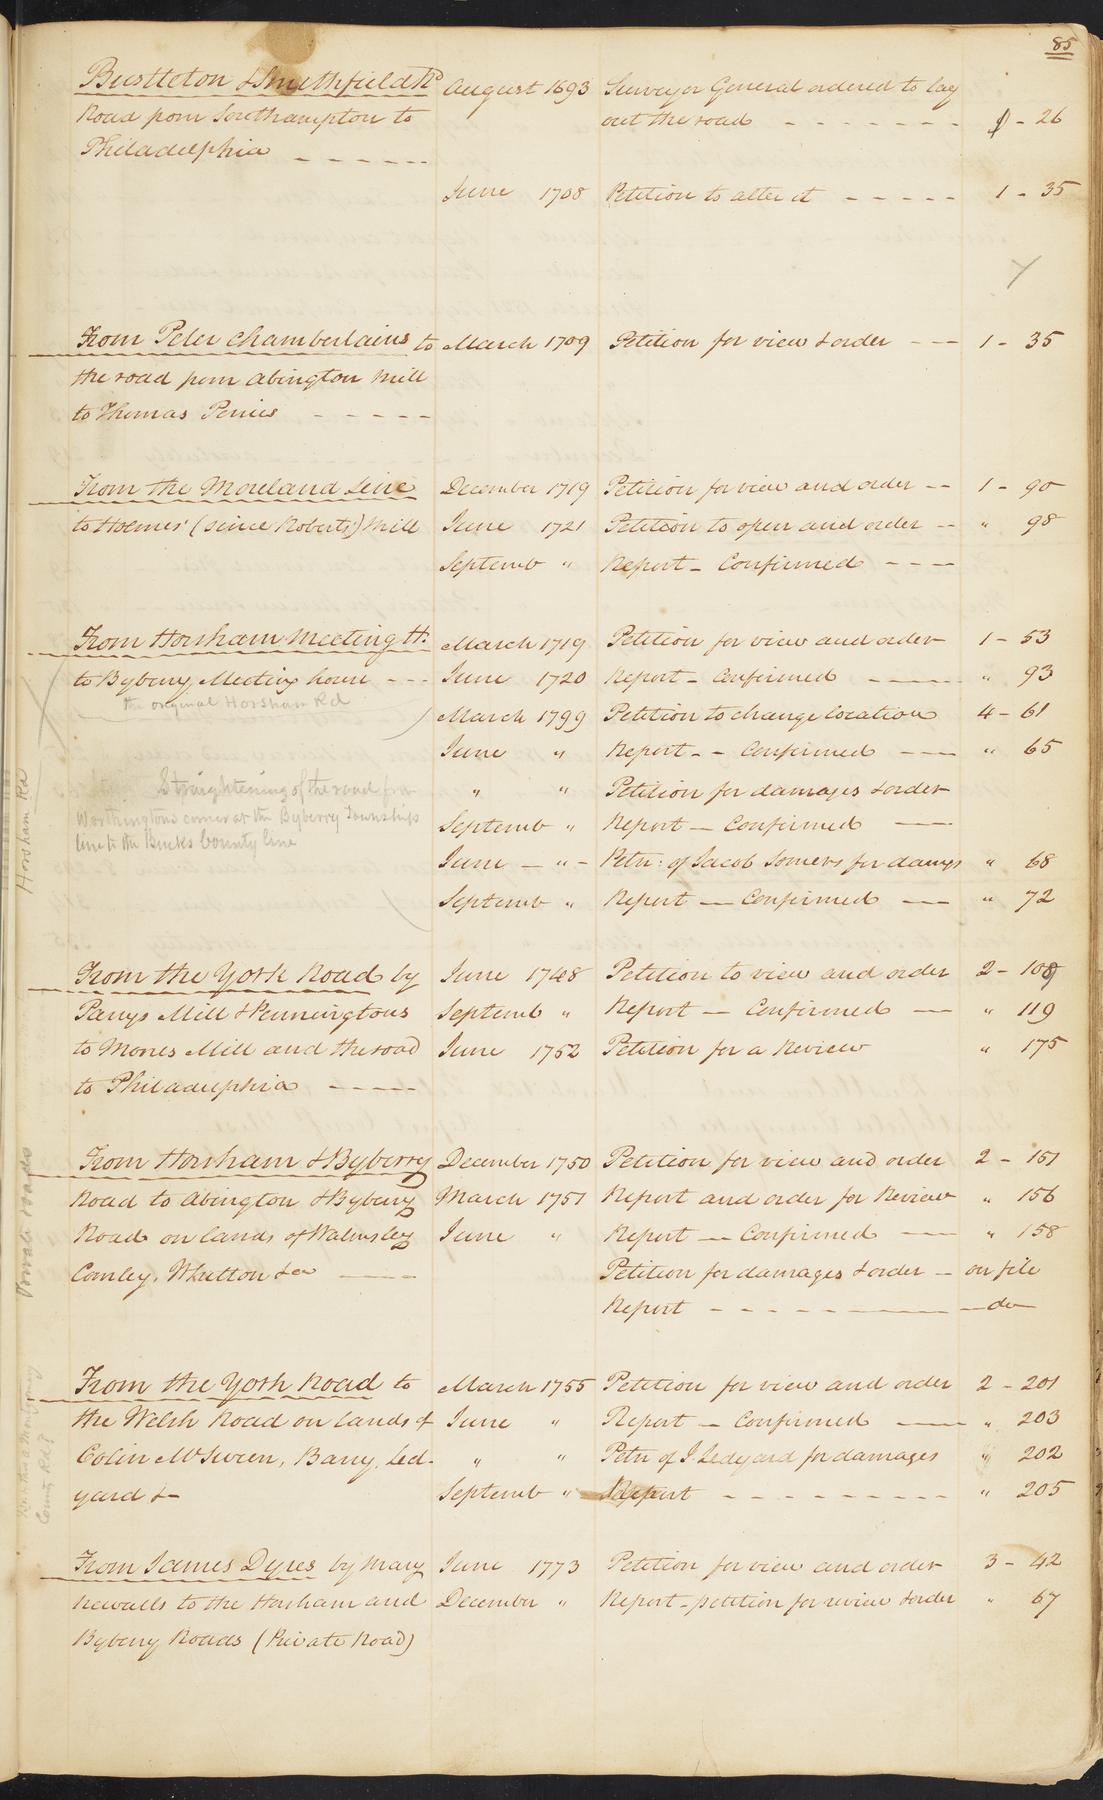 85
Bustleton & Smithfield Rd August 1693 Surveyor General ordered to lay
Road from Southampton to out the road - - - - - - - 1 - 26
Philadelphia - - - - - -
June 1708 Petition to alter it - - - - - 1 - 35
From Peter Chamberlains to March 1709 Petition for view & order - - - 1 - 35
the road from Abington Mill
to Thomas - - - - - -
From the Moreland Line December 1719 Petition for view and order - - 1 - 90
to Holmes' (since Roberts') Mill June 1721 Petition to open and order - - " 98
Septemb " Report - Confirmed - - - -
From Horsham Meeting H. March 1719 Petition for view and order 1 - 53
to Byberry Meeting house - - - June 1720 Report - Confirmed - - - " 93
the original Horsham Rd
March 1799 Petition to change location 4 - 61
June " Report - - Confirmed - - " 65
Straightening of the road from " " Petition for damages & order
Worthingtons corner at the Byberry Township Septemb " Report - Confirmed -
line to the Bucks County line
June - " - Petn: of Jacob Somers for damgs " 68
Septemb " Report - Confirmed - - " 72
Horsham Rd
From the York Road by June 1748 Petition to view and order 2 - 109
Parrys Mill & Penningtons Septemb " Report - Confirmed - " 119
to Morris Mill and the road June 1752 Petition for a Review " 175
to Philadelphia - - - -
From Horsham & Byberry December 1750 Petition for view and order 2 - 151
Road to Abington & Byberry March 1751 Report and order for Review " 156
Road on lands of Walmsley June " Report - Confirmed - " 158
Comley, & co - Petition for damages & order - on file
Report - - - - - - do -
Private Roads
From the York Road to March 1755 Petition for view and order 2 - 201
the Welsh Road on lands of June " Report - Confirmed - " 203
Colin McSween, Barry, Led- " " Petn of J Ledyard for damages " 202
yard & - Septemb " Report - - - - - - - - - " 205
From James Dyres by Mary June 1773 Petition for view and order 3 - 42
Newalls to the Horsham and December " Report - petition for review & order " 67
Byberry Roads (Private Road)